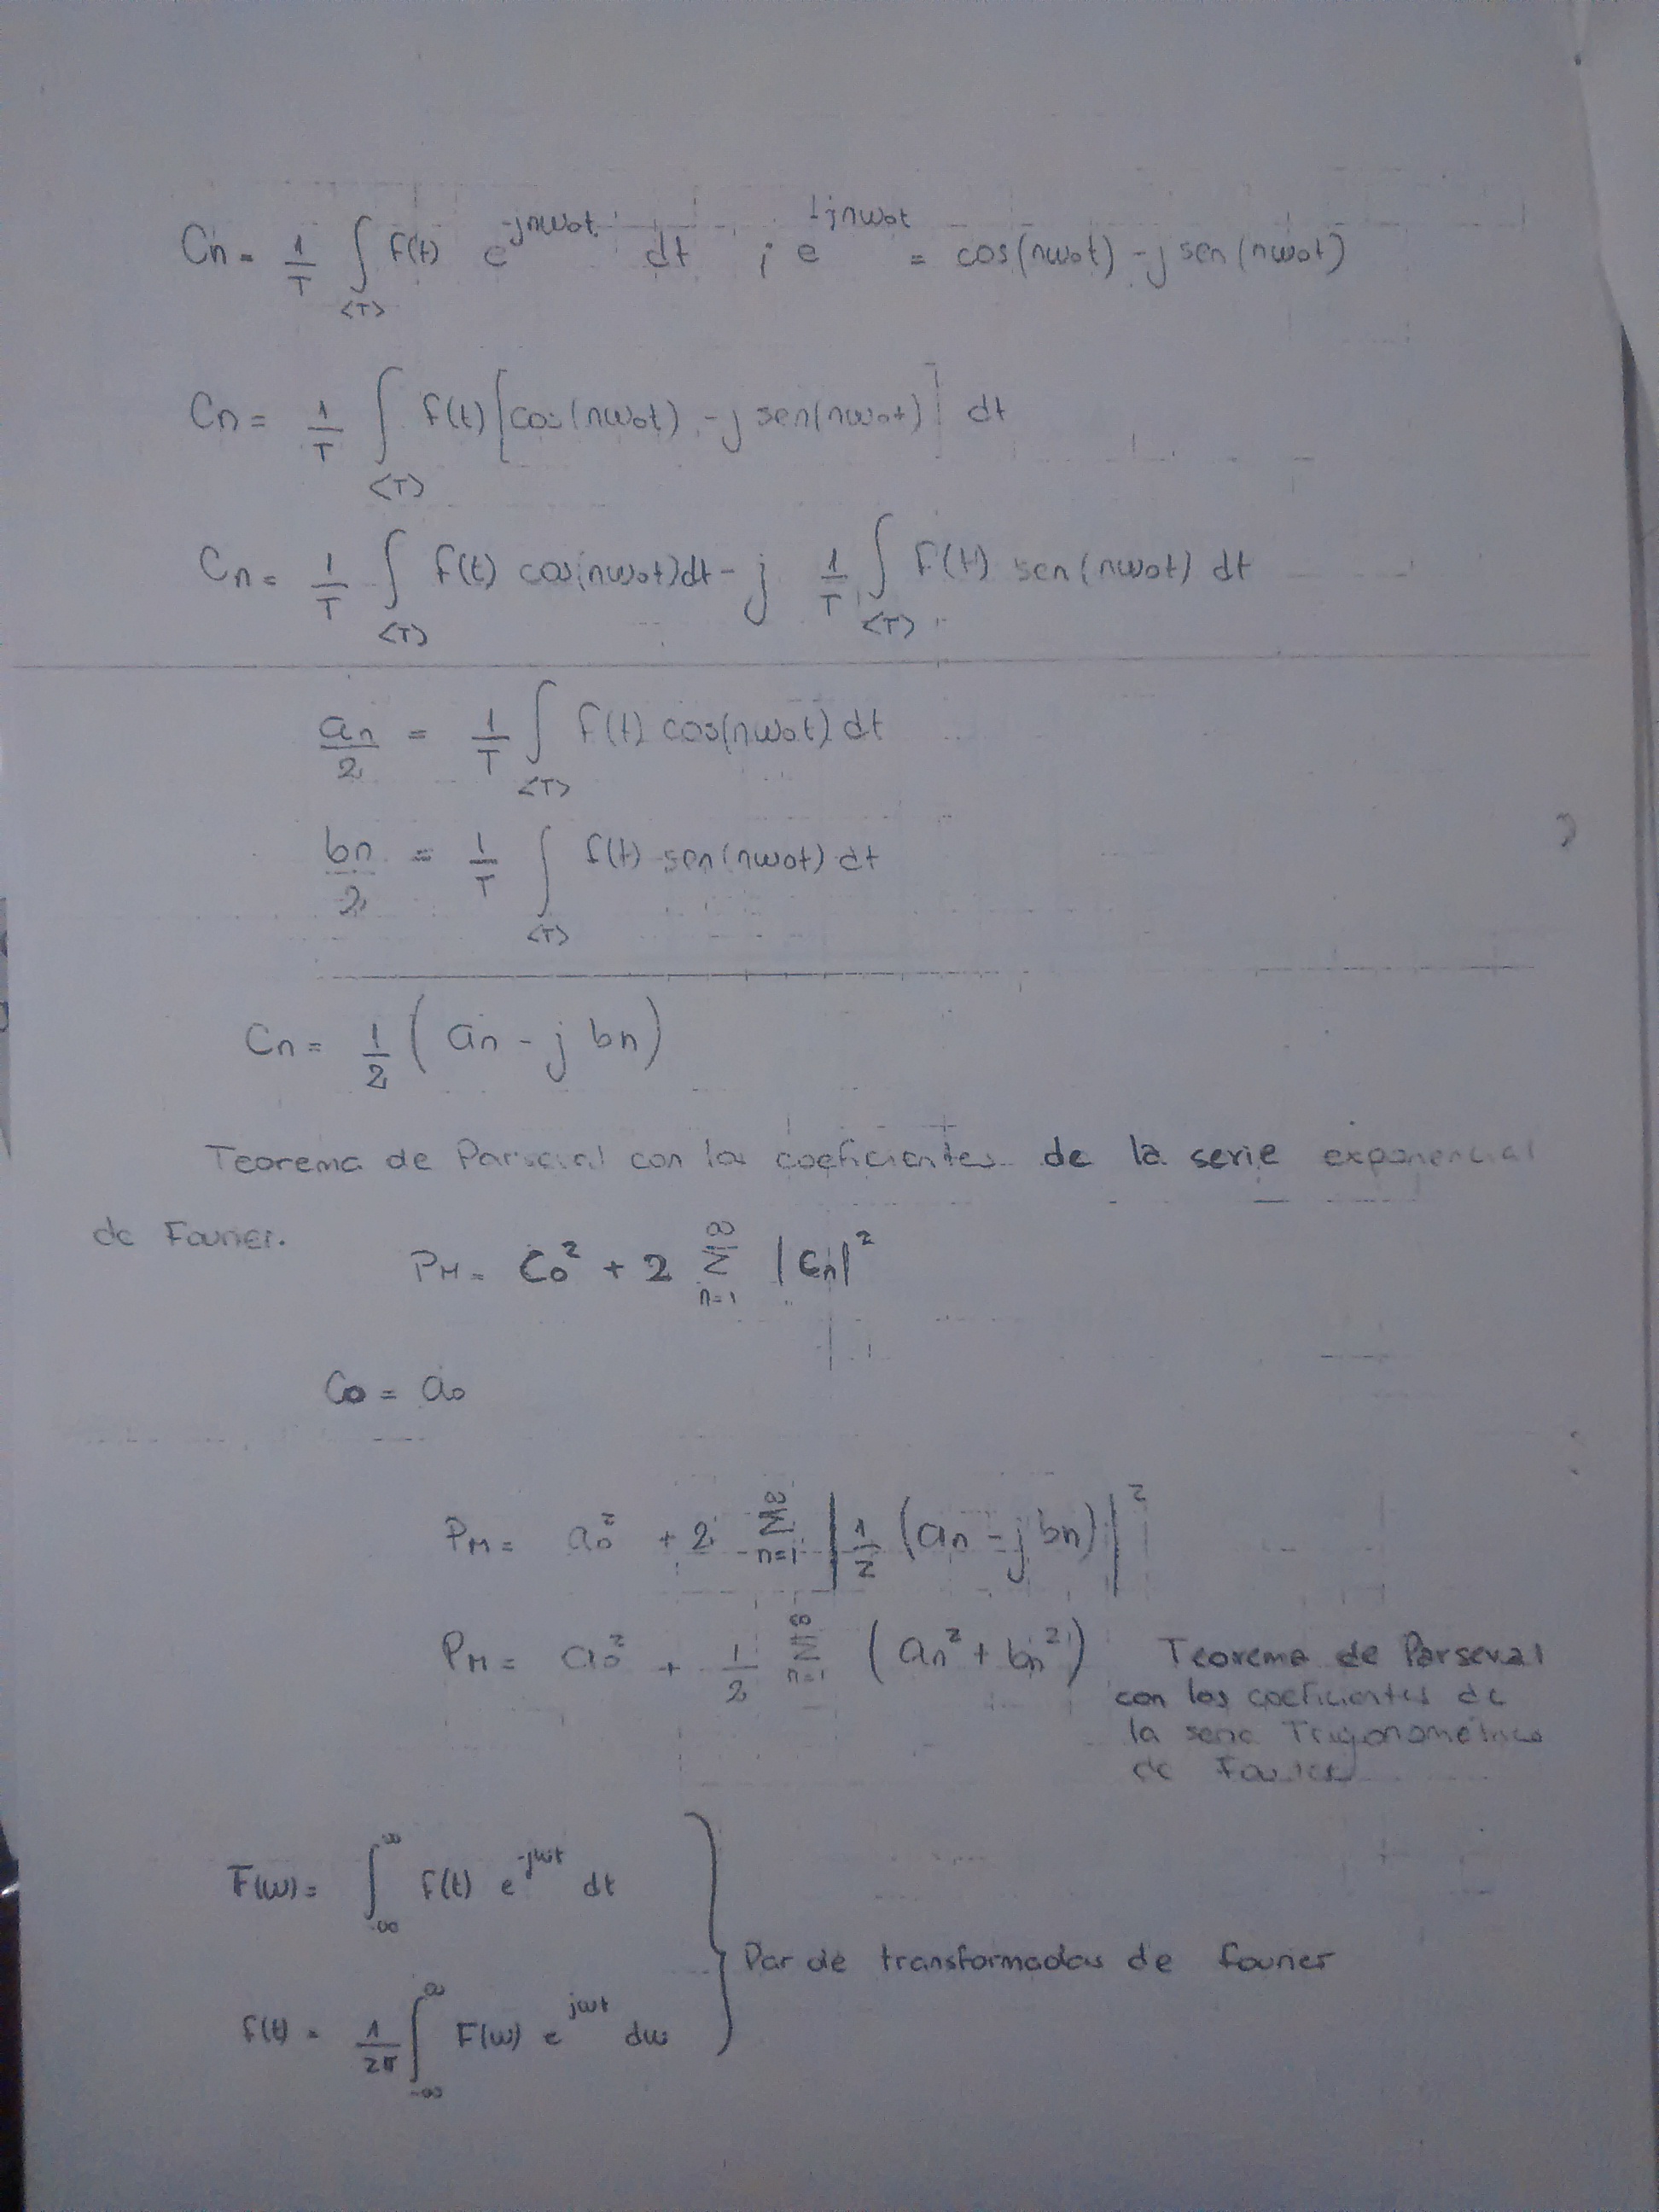 Cn = 1/T ∫<T> f(t) e^-jnω0t dt ; e^-jnω0t = cos(nω0t) - j sen(nω0t)
Cn = 1/T ∫<T> f(t) [cos(nω0t) - j sen(nω0t)] dt
Cn = 1/T ∫<T> f(t) cos(nω0t) dt - j 1/T ∫<T> f(t) sen(nω0t) dt
an/2 = 1/T ∫<T> f(t) cos(nω0t) dt
bn/2 = 1/T ∫<T> f(t) sen(nω0t) dt
Cn = 1/2 (an - j bn)
Teorema de Parseval con los coeficientes de la serie exponencial
de Fourier.
PM = C0² + 2 ∑n=1^∞ |Cn|²
C0 = a0
PM = a0² + 2 ∑n=1^∞ |1/2 (an - j bn)|²
PM = a0² + 1/2 ∑n=1^∞ (an² + bn²) Teorema de Parseval
con los coeficientes de
la serie Trigonométrica
de Fourier
F(ω) = ∫-∞^∞ f(t) e^-jωt dt
Par de transformadas de Fourier
f(t) = 1/2π ∫-∞^∞ F(ω) e^jωt dω